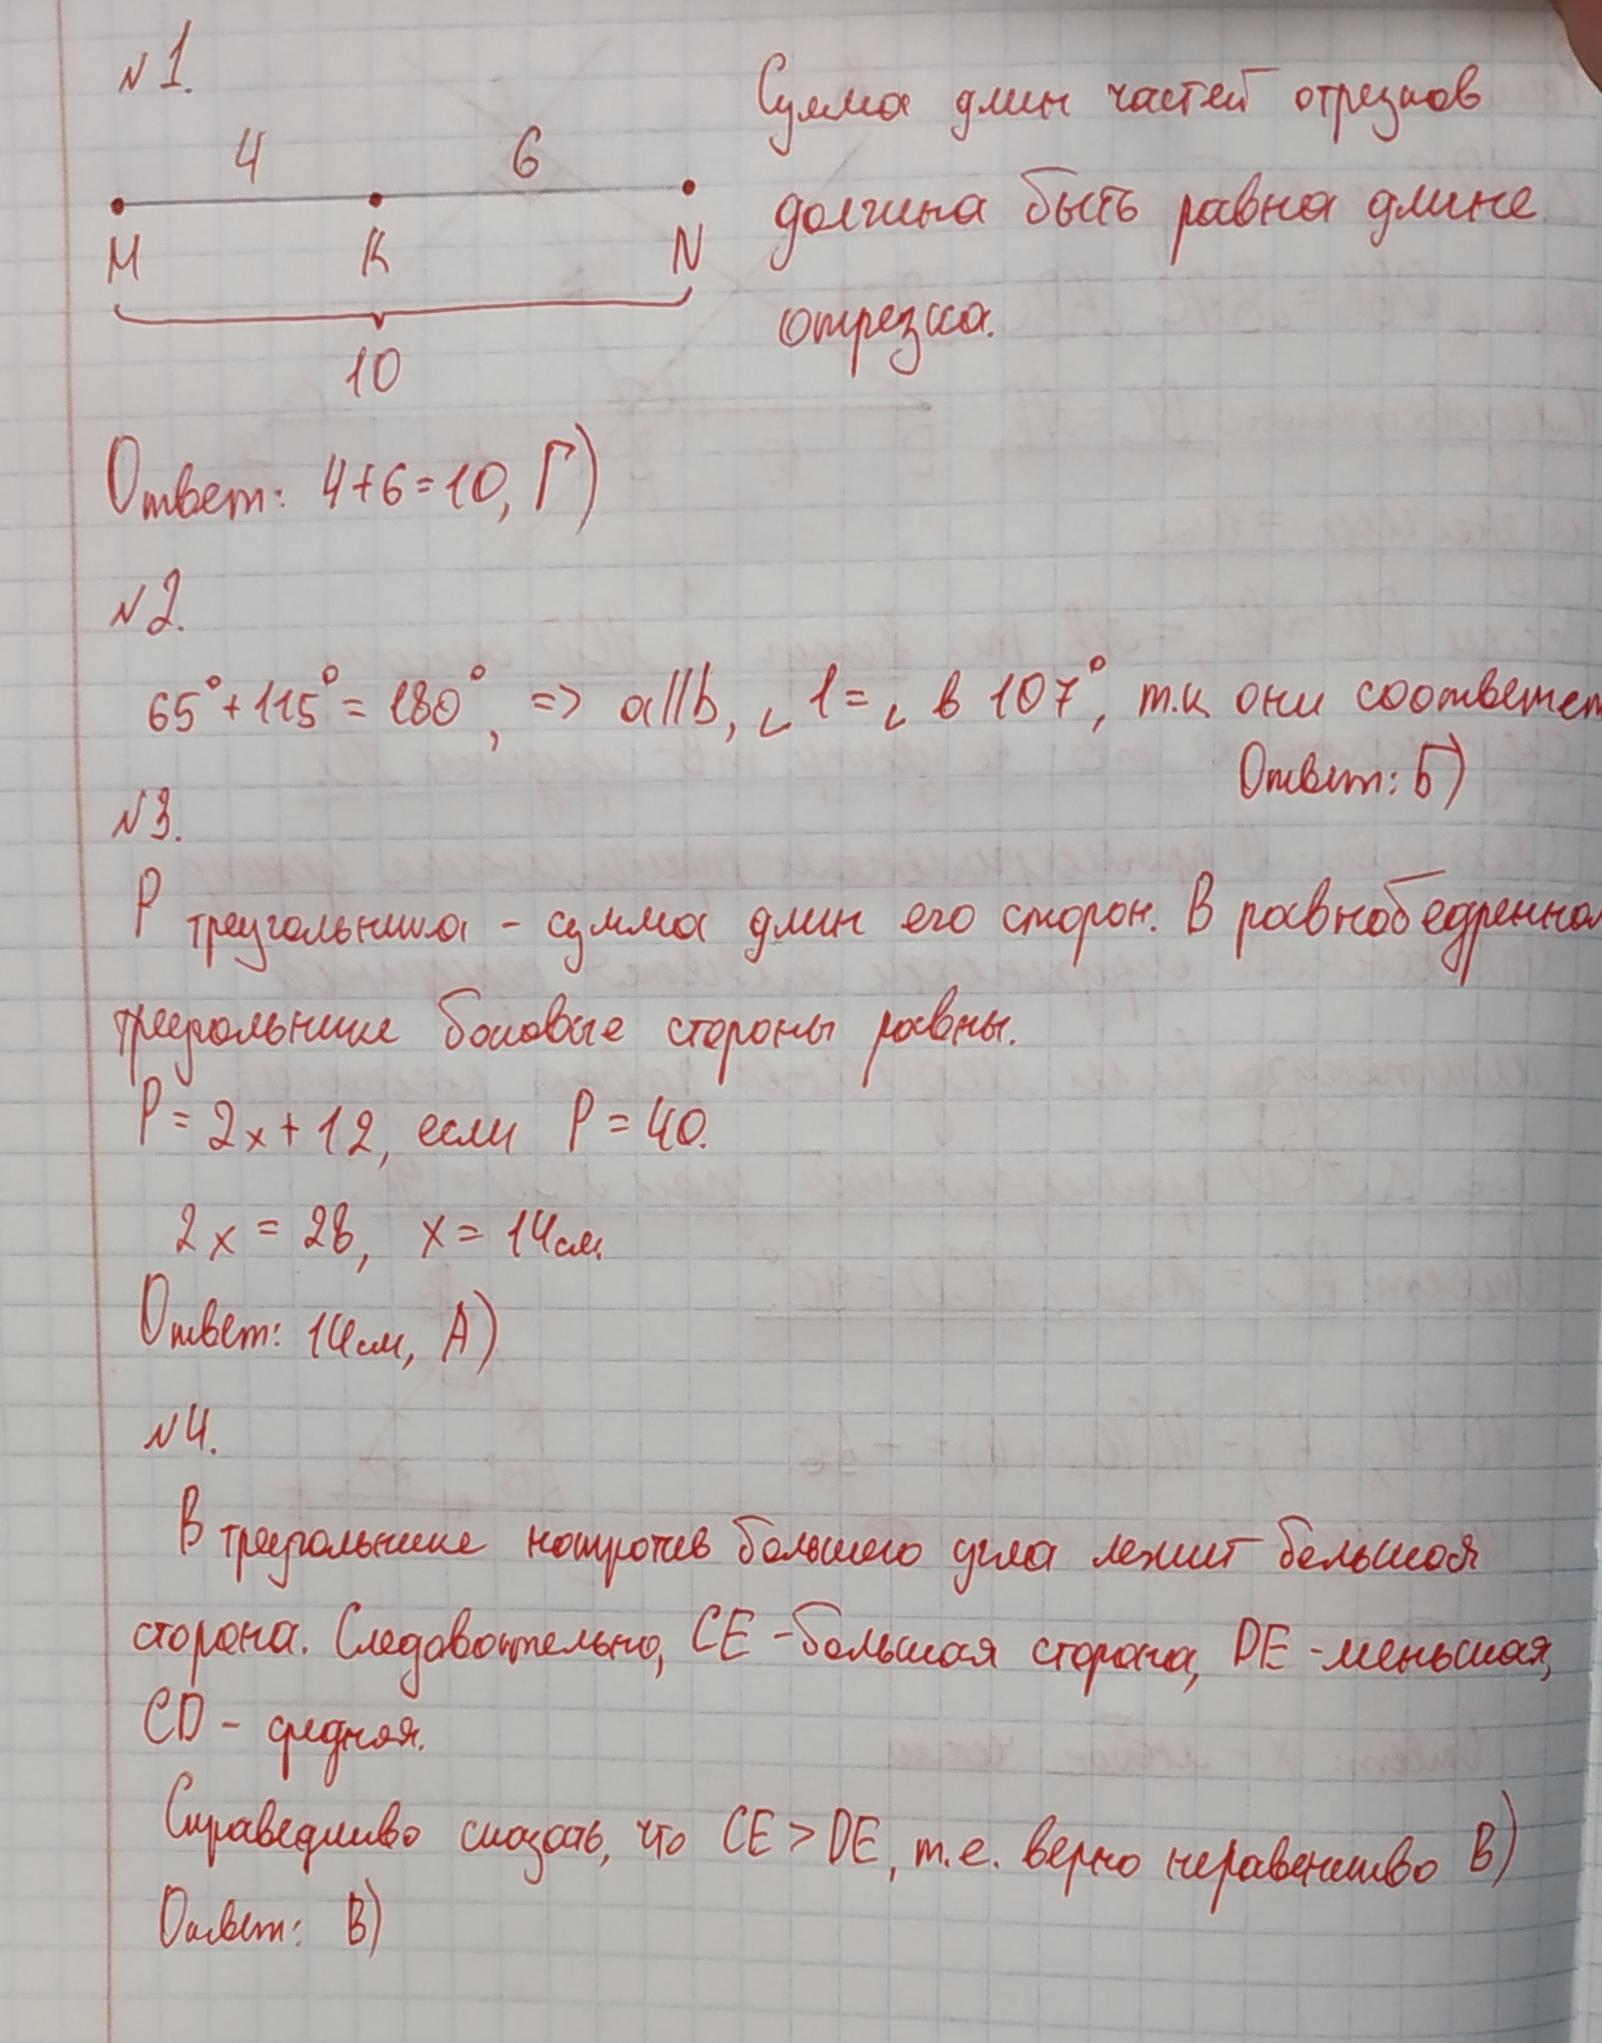 N1.
4 6
M K N
10
Сумма длин частей отрезков
должна быть равна длине
отрезка.
Ответ: 4+6=10, Г)
N2.
65°+115°=180°, => a||b, ∠1=∠ в 107°, т.к они соответст
Ответ: Б)
N3.
P треугольника - сумма длин его сторон. В равнобедренном
треугольнике боковые стороны равны.
P=2x+12, если P=40.
2x=28, x=14см.
Ответ: 14см, А)
N4.
В треугольнике напротив большего угла лежит большая
сторона. Следовательно, CE -большая сторона, DE -меньшая,
CD - средняя.
Справедливо сказать, что CE>DE, т.е. верно неравенство В)
Ответ: В)